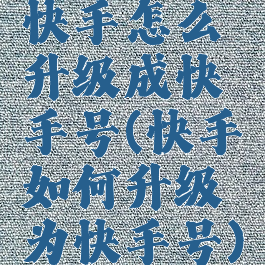 快手怎么
升级成快
手号(快手
如何升级
为快手号)